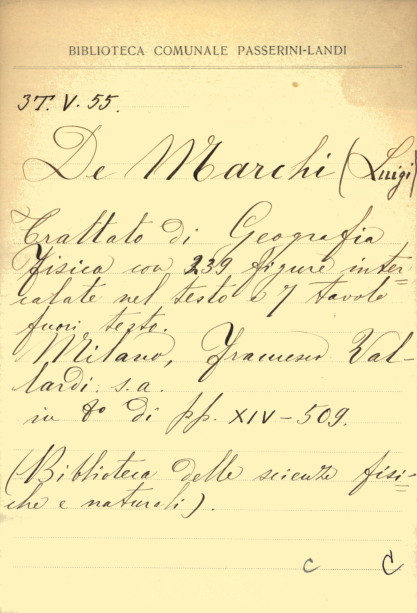 BIBLIOTECA COMUNALE PASSERINI-LANDI
3T. V. 55.
De Marchi (Luigi)
Trattato di Geografia
fisica con 239 figure inter=
calate nel testo e 7 tavole
fuori testo.
Milano, Francesco Val-
lardi. s. a.
in 8º di pp. XIV-509.
(Biblioteca delle scienze fisi=
che e naturali).
C C